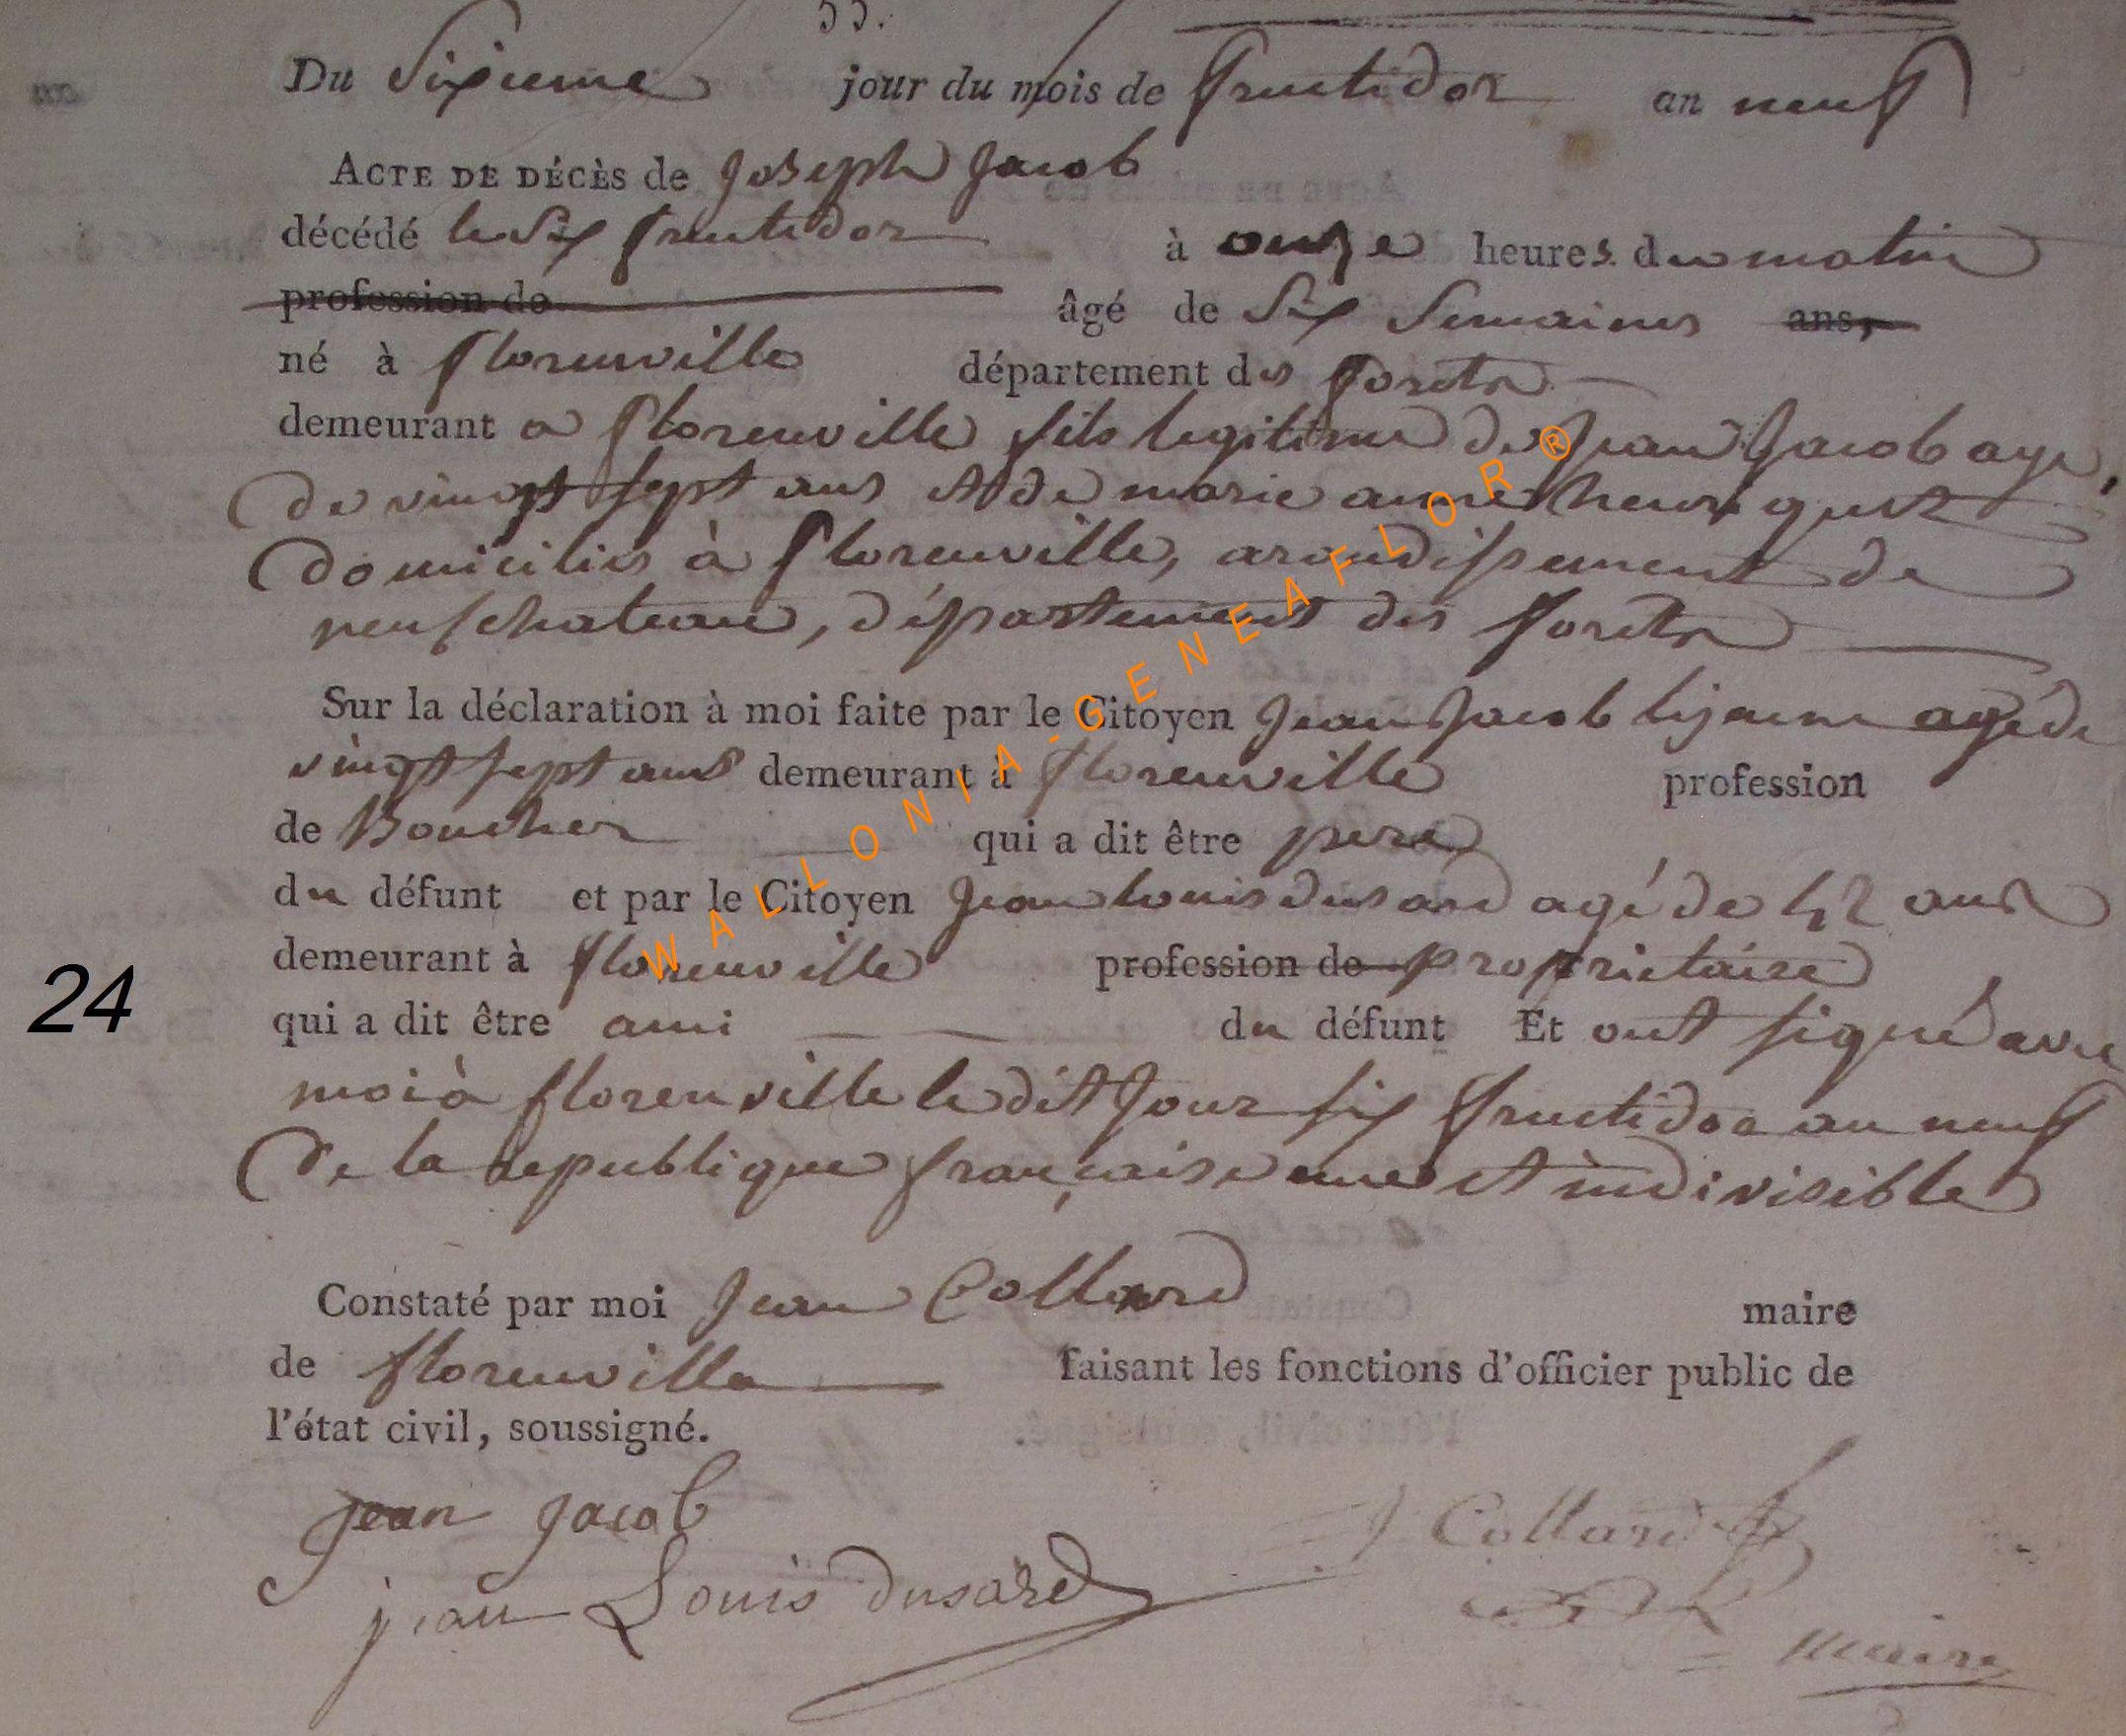 55.
Du Sixieme jour du mois de fructidor an neuf
ACTE DE DÉCÈS de Joseph Jacob
décédé le Six fructidor à onze heures du matin
profession de âgé de Six Semaines ans,
né à florenville département des forets
demeurant a florenville fils legitime de Jean Jacob agé
de vingt sept ans et de marie anne henriquet
domiciliés à florenville, arondissement de
neufchateau, département des forets
Sur la déclaration à moi faite par le Citoyen Jean Jacob le jeune agé de
vingt sept ans demeurant à florenville profession
de Boucher qui a dit être pere
du défunt et par le Citoyen Jean louis dusard agé de 42 ans
demeurant à florenville profession de proprietaire
24
qui a dit être ami du défunt Et ont signé avec
moi à florenville le dit Jour six fructidor an neuf
de la republique française une et indivisible
Constaté par moi Jean Collard maire
de florenville faisant les fonctions d'officier public de
l'état civil, soussigné.
jean jacob
J Collard
jean Louis dusard
maire
WALLONIA-GENEAFLOR®